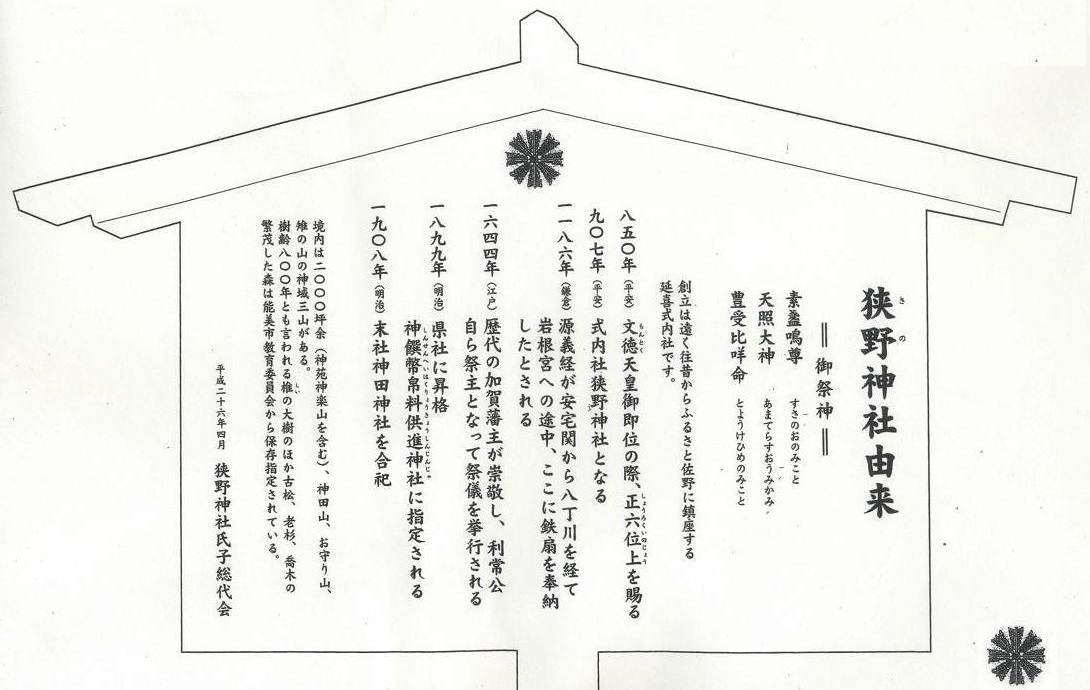 狭野神社由来
さの
＝御祭神＝
素盞嗚尊 すさのおのみこと
天照大神 あまてらすおうみかみ
豊受比咩命 とようけひめのみこと
創立は遠く往昔からふるさと佐野に鎮座する
延喜式内社です。
八五〇年（平安） 文徳天皇御即位の際、正六位上を賜る
もんとく しょうろくいのじょう
九〇七年（平安） 式内社狭野神社となる
一一八六年（鎌倉） 源義経が安宅関から八丁川を経て
岩根宮への途中、ここに鉄扇を奉納
したとされる
一六四四年（江戸） 歴代の加賀藩主が崇敬し、利常公
自ら祭主となって祭儀を挙行される
一八九九年（明治） 県社に昇格
神饌幣帛料供進神社に指定される
しんせんへいはくりょうきょうしんじんじゃ
一九〇八年（明治） 末社神田神社を合祀
境内は二〇〇〇坪余（神苑神楽山を含む）、神田山、お守り山、
雉の山の神域三山がある。
樹齢八〇〇年とも言われる椎の大樹のほか古松、老杉、喬木の
しい
繁茂した森は能美市教育委員会から保存指定されている。
平成二十六年四月 狭野神社氏子総代会